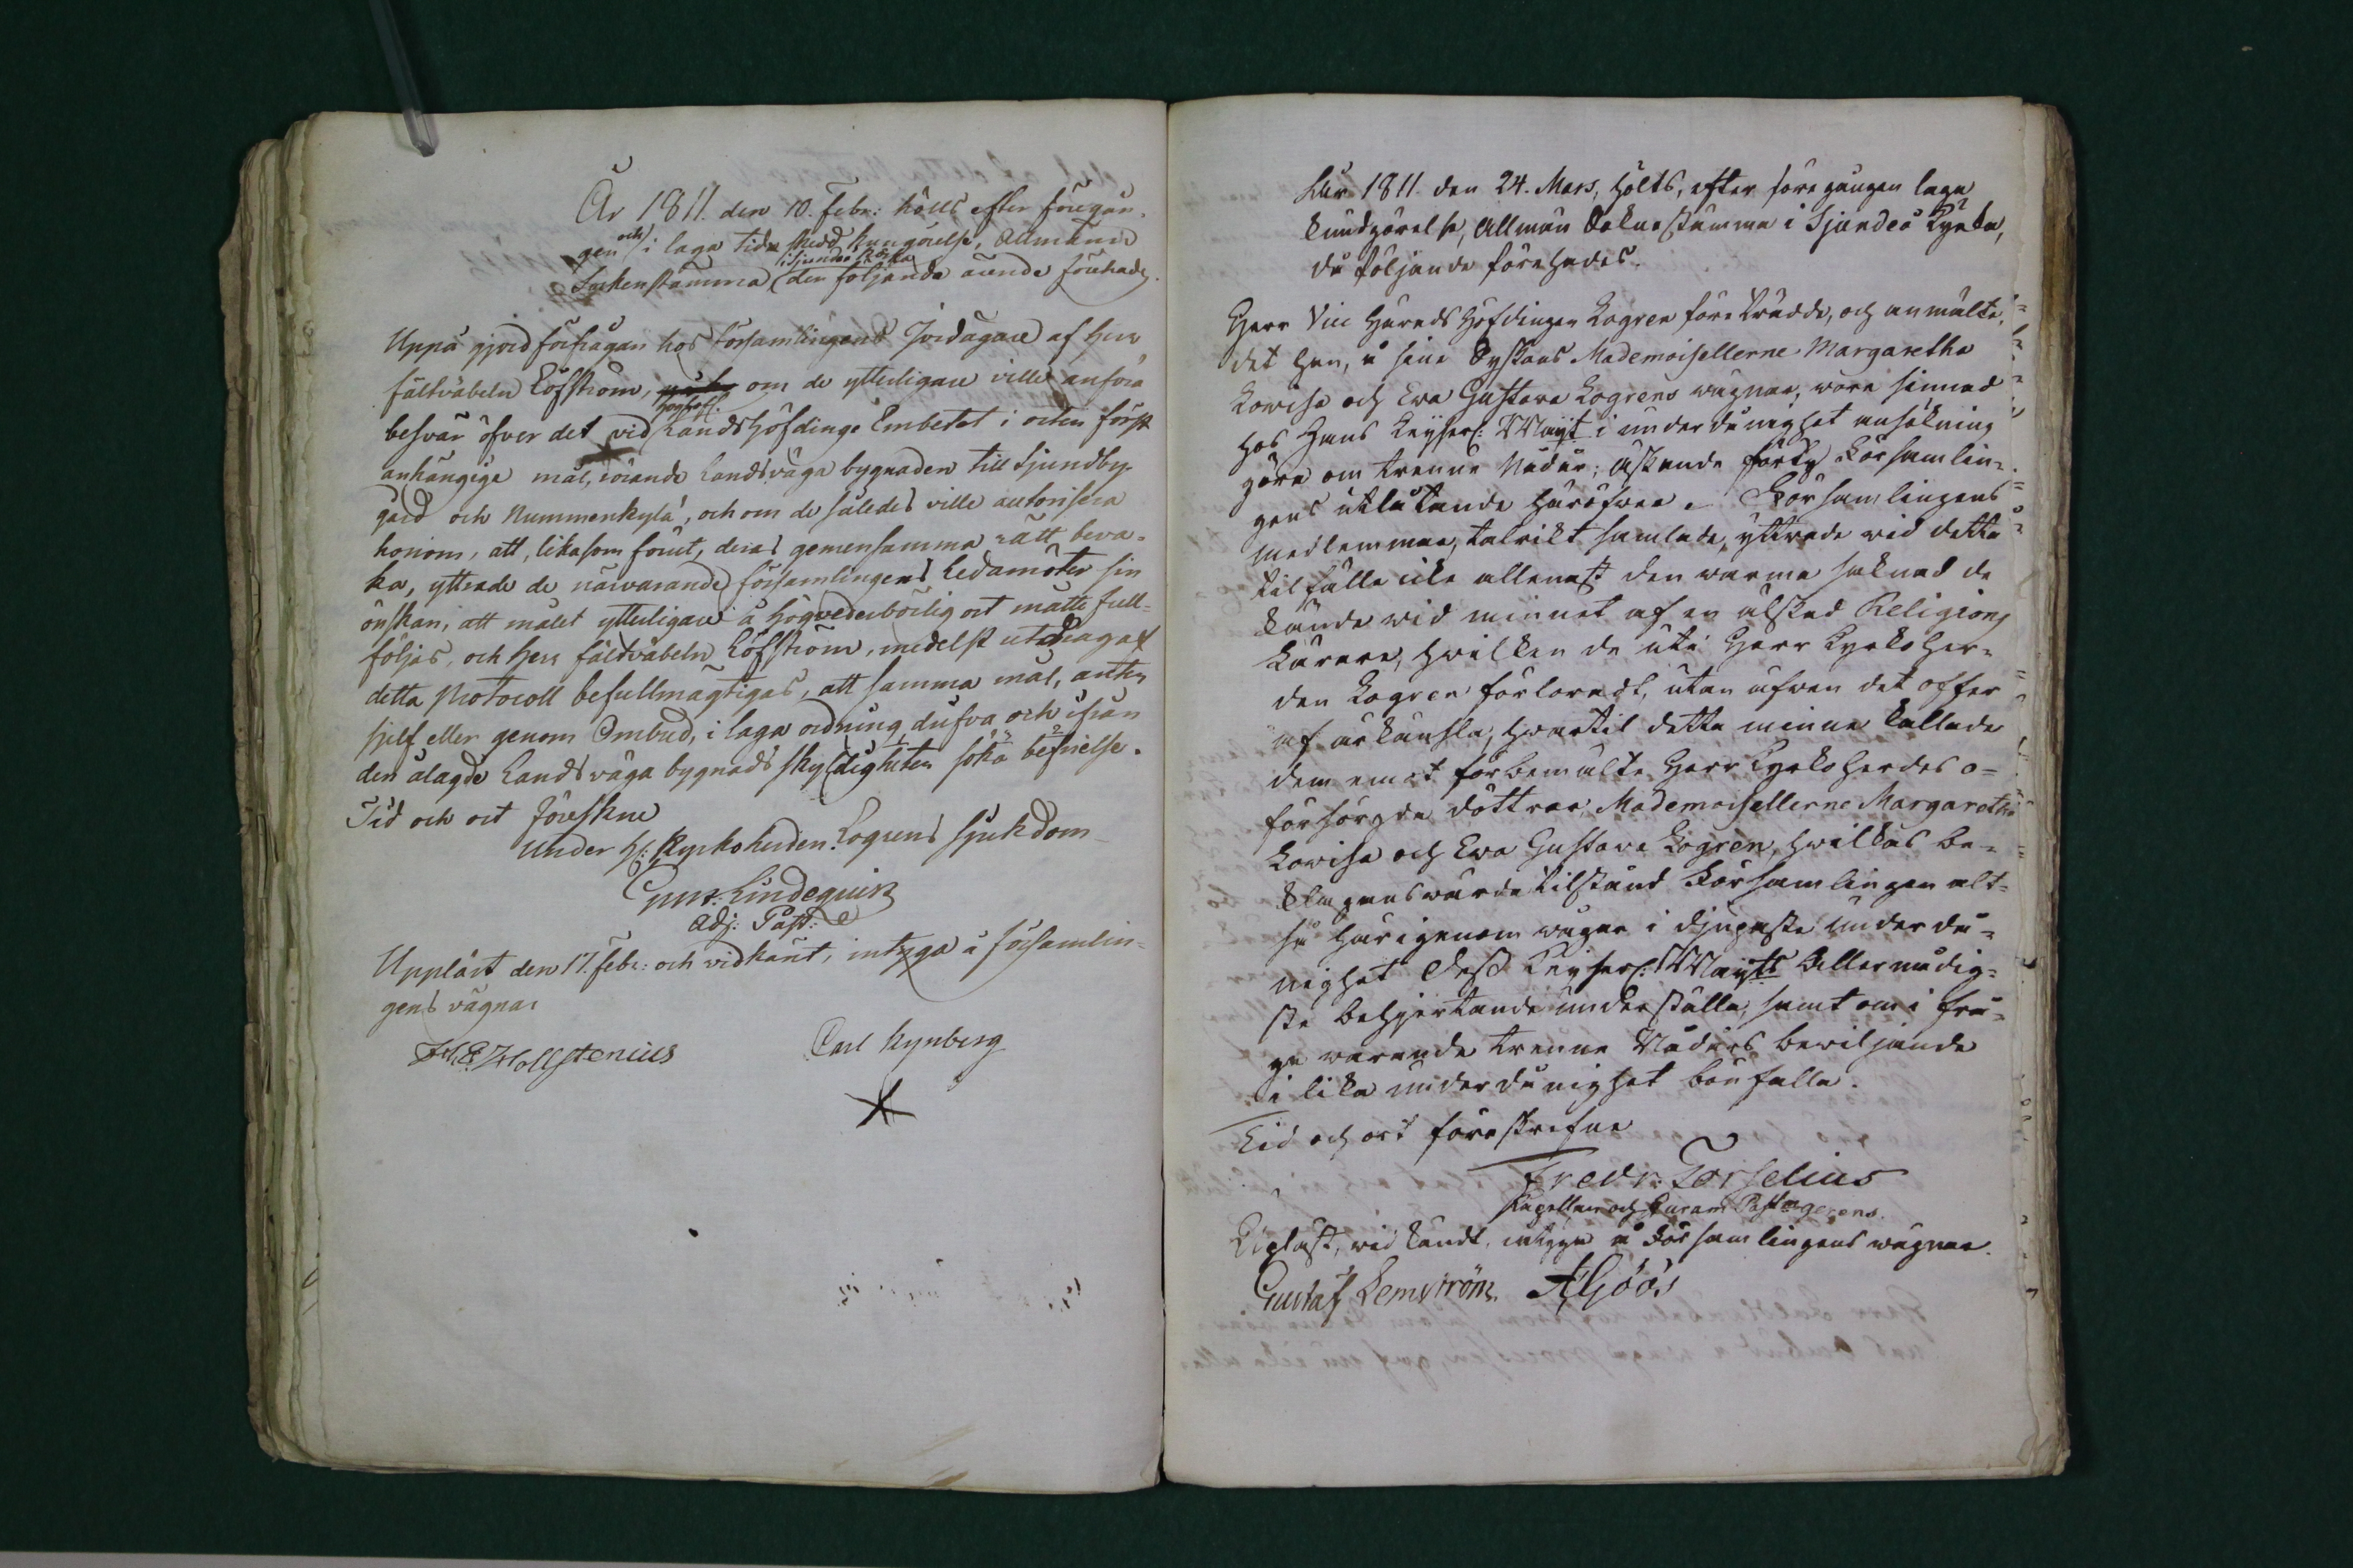 År 1811. den 10. Febr: hölls efter föregån-
gen och i laga tid skedd kungörelse, Allmänn
Sockenstämma i Sjundeå Kyrka, der följande ärende förehades.
Uppå gjord förfrågan hos Församlingens Jordägare af Herr
Fältväbeln Löfström, om de ytterligare ville anföra
besvär öfver det vid Landshöfdinge Embetet i orten först
anhängige mål, rörande Landsväga bygnaden till Sjundby
gård och Nummenkylä, och om de således ville autorisera
honom, att, likasom förut, deras gemensamma rätt beva-
ka, yttrade de närvarande församlingens Ledamöter sin
önskan, att målet ytterligare å högvederbörlig ort måtte full-
följas, och Herr fältväbeln Löfström, medelst utdrag af
detta Protocoll befullmägtigas, att samma mål, anten
sjelf eller genom Ombud, i laga ordning, drifva och ifrån
den ålagde Landsväga bygnads skyldigheten söka befrielse.
Tid och ort föreskrne
under H: Kyrkoherden Logrens sjukdom
Lindequist
Adj: Past:
Uppläst den 17. Febr: och vidkänt, intyga å församlin-
gens vägnar
Hollstenius Carl Rynberg
År 1811 den 24. Mars, hölts, efter föregången laga
kundgörelse, Allmän Soknestämma i Sjundeå Kyrka,
då följande förehades.
Herr Vice Härads Höfdingen Logren företrädde, och anmälte,
det han, å sine Syskons Mademoisellerne Margaretha
Lovisa och Eva Gustava Logrens wägnar, wore sinnad
hos Hans Keyserl: Mayt i underdånighet ansökning
göra om trenne Nådår; äskande förty Församlin-
gens utlåtande häröfwer. Församlingens
medlemmar, talrikt samlade, yttrade wid detta
tilfälle icke allenast den warma saknad de
kände wid minnet af en älskad Religions
Lärare, hwilken de uti Herr Kyrkoher-
den Logren förloradt, utan äfwen det offer
af ärkänsla, hwartil detta minne kallade
dem emot förbemälte Herr Kyrkoherdes o-
försörgda döttrar, Mademoisellerne Margaretha
Lovisa och Eva Gustava Logren, hwilkas be-
klagansvärda tilstånd Församlingen alt-
så härigenom wågar i djupaste underdå-
nighet Dess Keyserl: Mayts Allernådig-
ste behjertande underställa, samt om i frå-
ga warande trenne Nådårs bewiljande
i lika underdånighet bönfalla.
Tid och ort föreskrifne
Fredr: Forselius
Kapellan och Curam Past: gerens.
Upläst, widkändt, intyga å Församlingens wägnar.
Gustaf Lemström A Göös